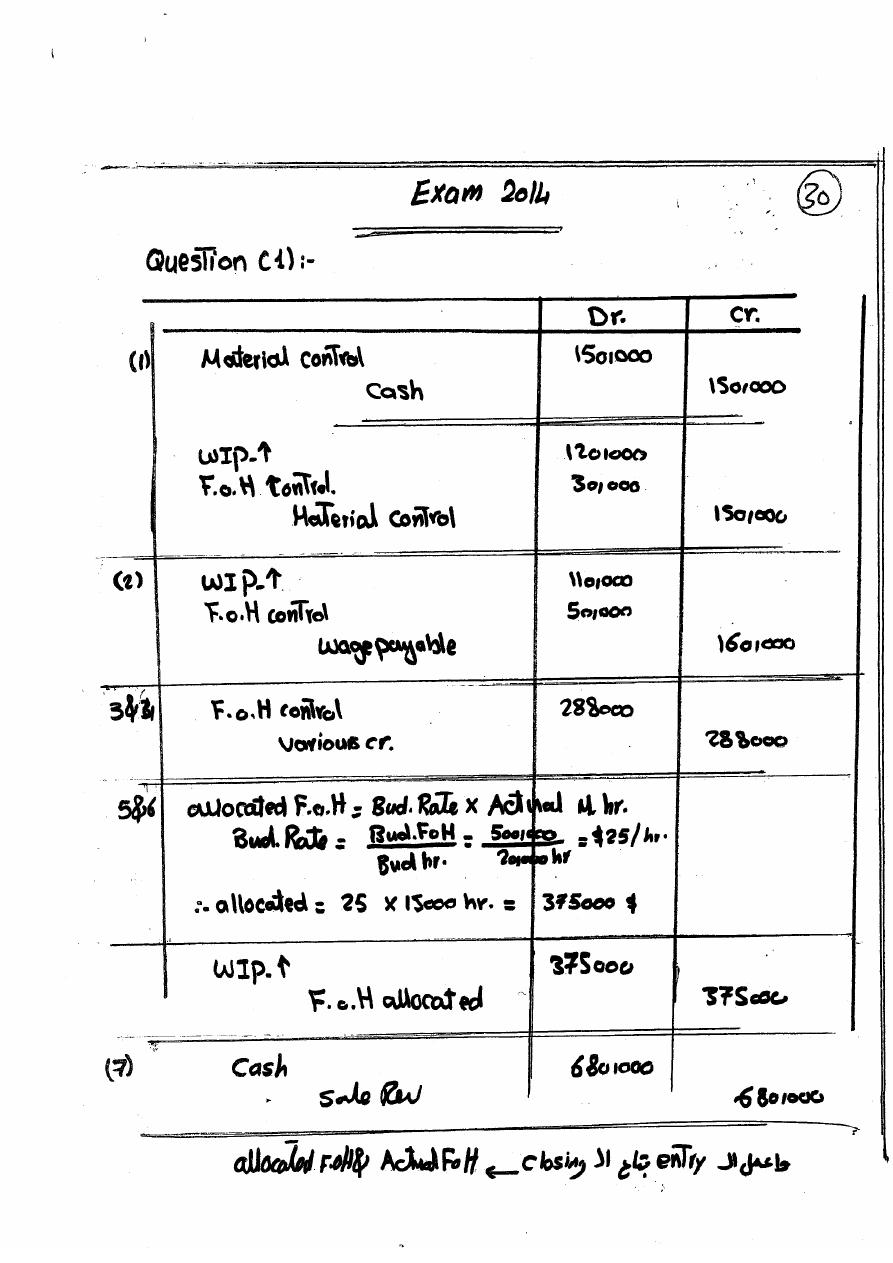 Exam 2014
30
Question (1):-
Dr. Cr.
(1) Material control 150,000
Cash 150,000
WIP.↑ 120,000
F.o.H control. 30,000
Material control 150,000
(2) WIP.↑ 110,000
F.o.H control 50,000
wage payable 160,000
3& F.o.H control 288000
various cr. 288000
5&6 allocated F.o.H = Bud. Rate x Actual M hr.
Bud. Rate = Bud.FoH / Bud hr. = 500,000 / 20,000 hr = $25/hr.
∴ allocated = 25 x 15000 hr. = 375000 $
WIP.↑ 375000
F.o.H allocated 375000
(7) Cash 680,000
Sale Rev 680,000
هاعمل ال entry بتاع ال closing ← allocated F.oH & Actual FoH